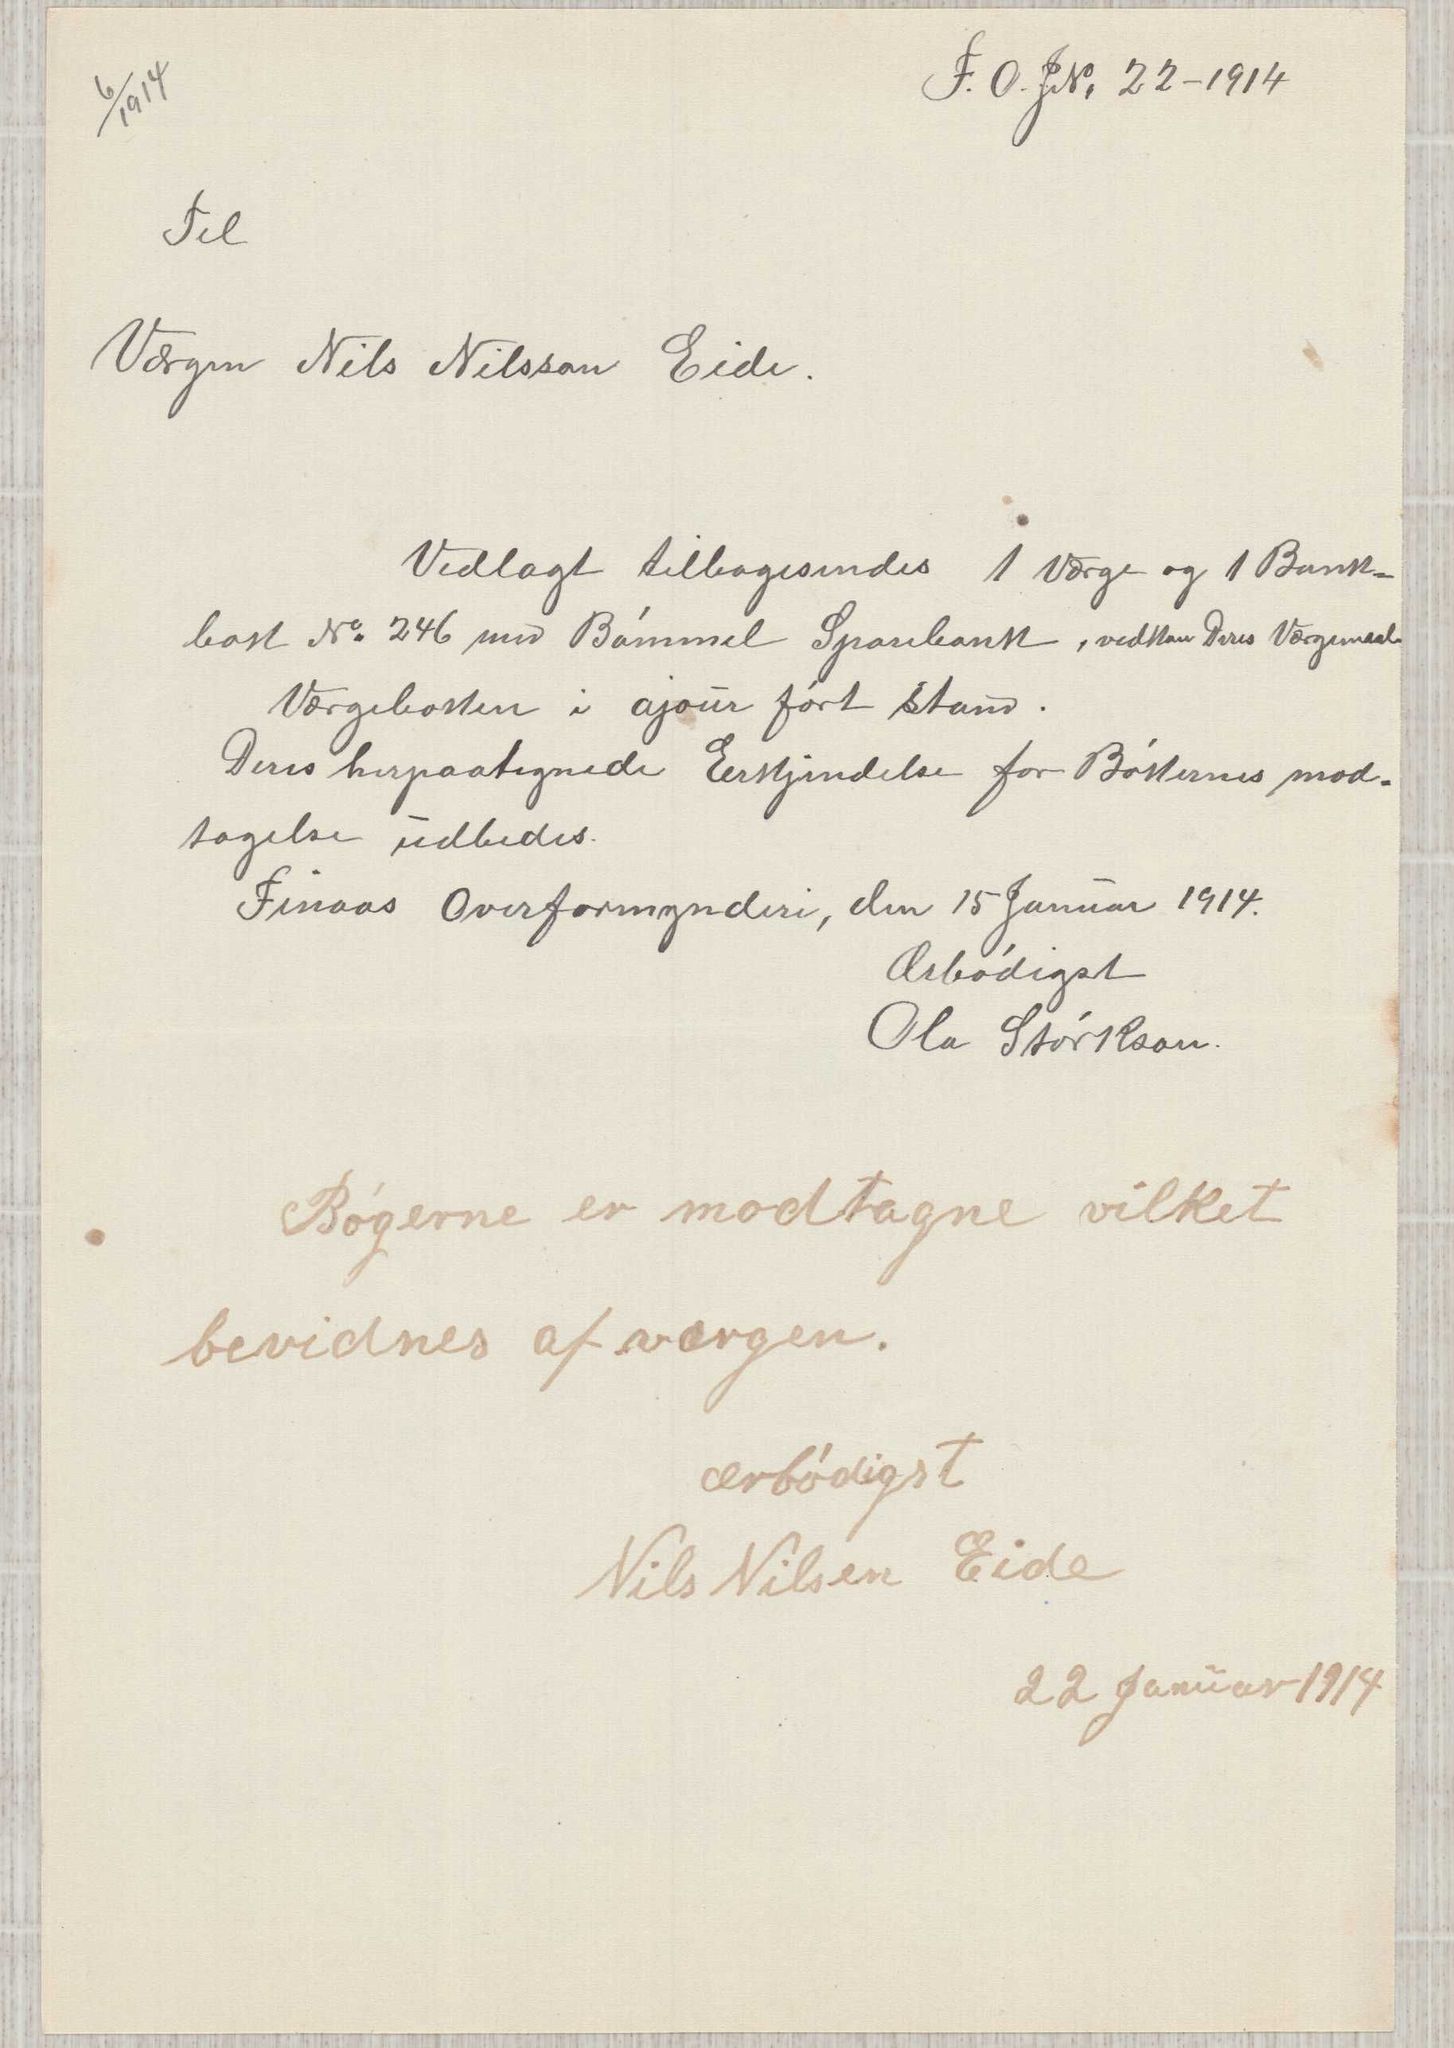 6/1914
F. O. J.N. 22-1914
Til
Værgen Nils Nilsson Eide.
Vedlagt tilbagesendes 1 Værge og 1 Bank-
bok No. 246 med Bómmel Sparebank, vedkom Deres Værgemaal.
Værgeboken i ajour fört stand.
Deres herpaategnede Erkjendelse for Bökernes mod-
tagelse udbedes.
Finaas Overformynderi, den 15 Januar 1914.
Ærbödigst
Ola Störkson.
Bógerne er modtagne vilket
bevidnes af værgen.
ærbódigst
Nils Nilsen Eide
22 Januar 1914